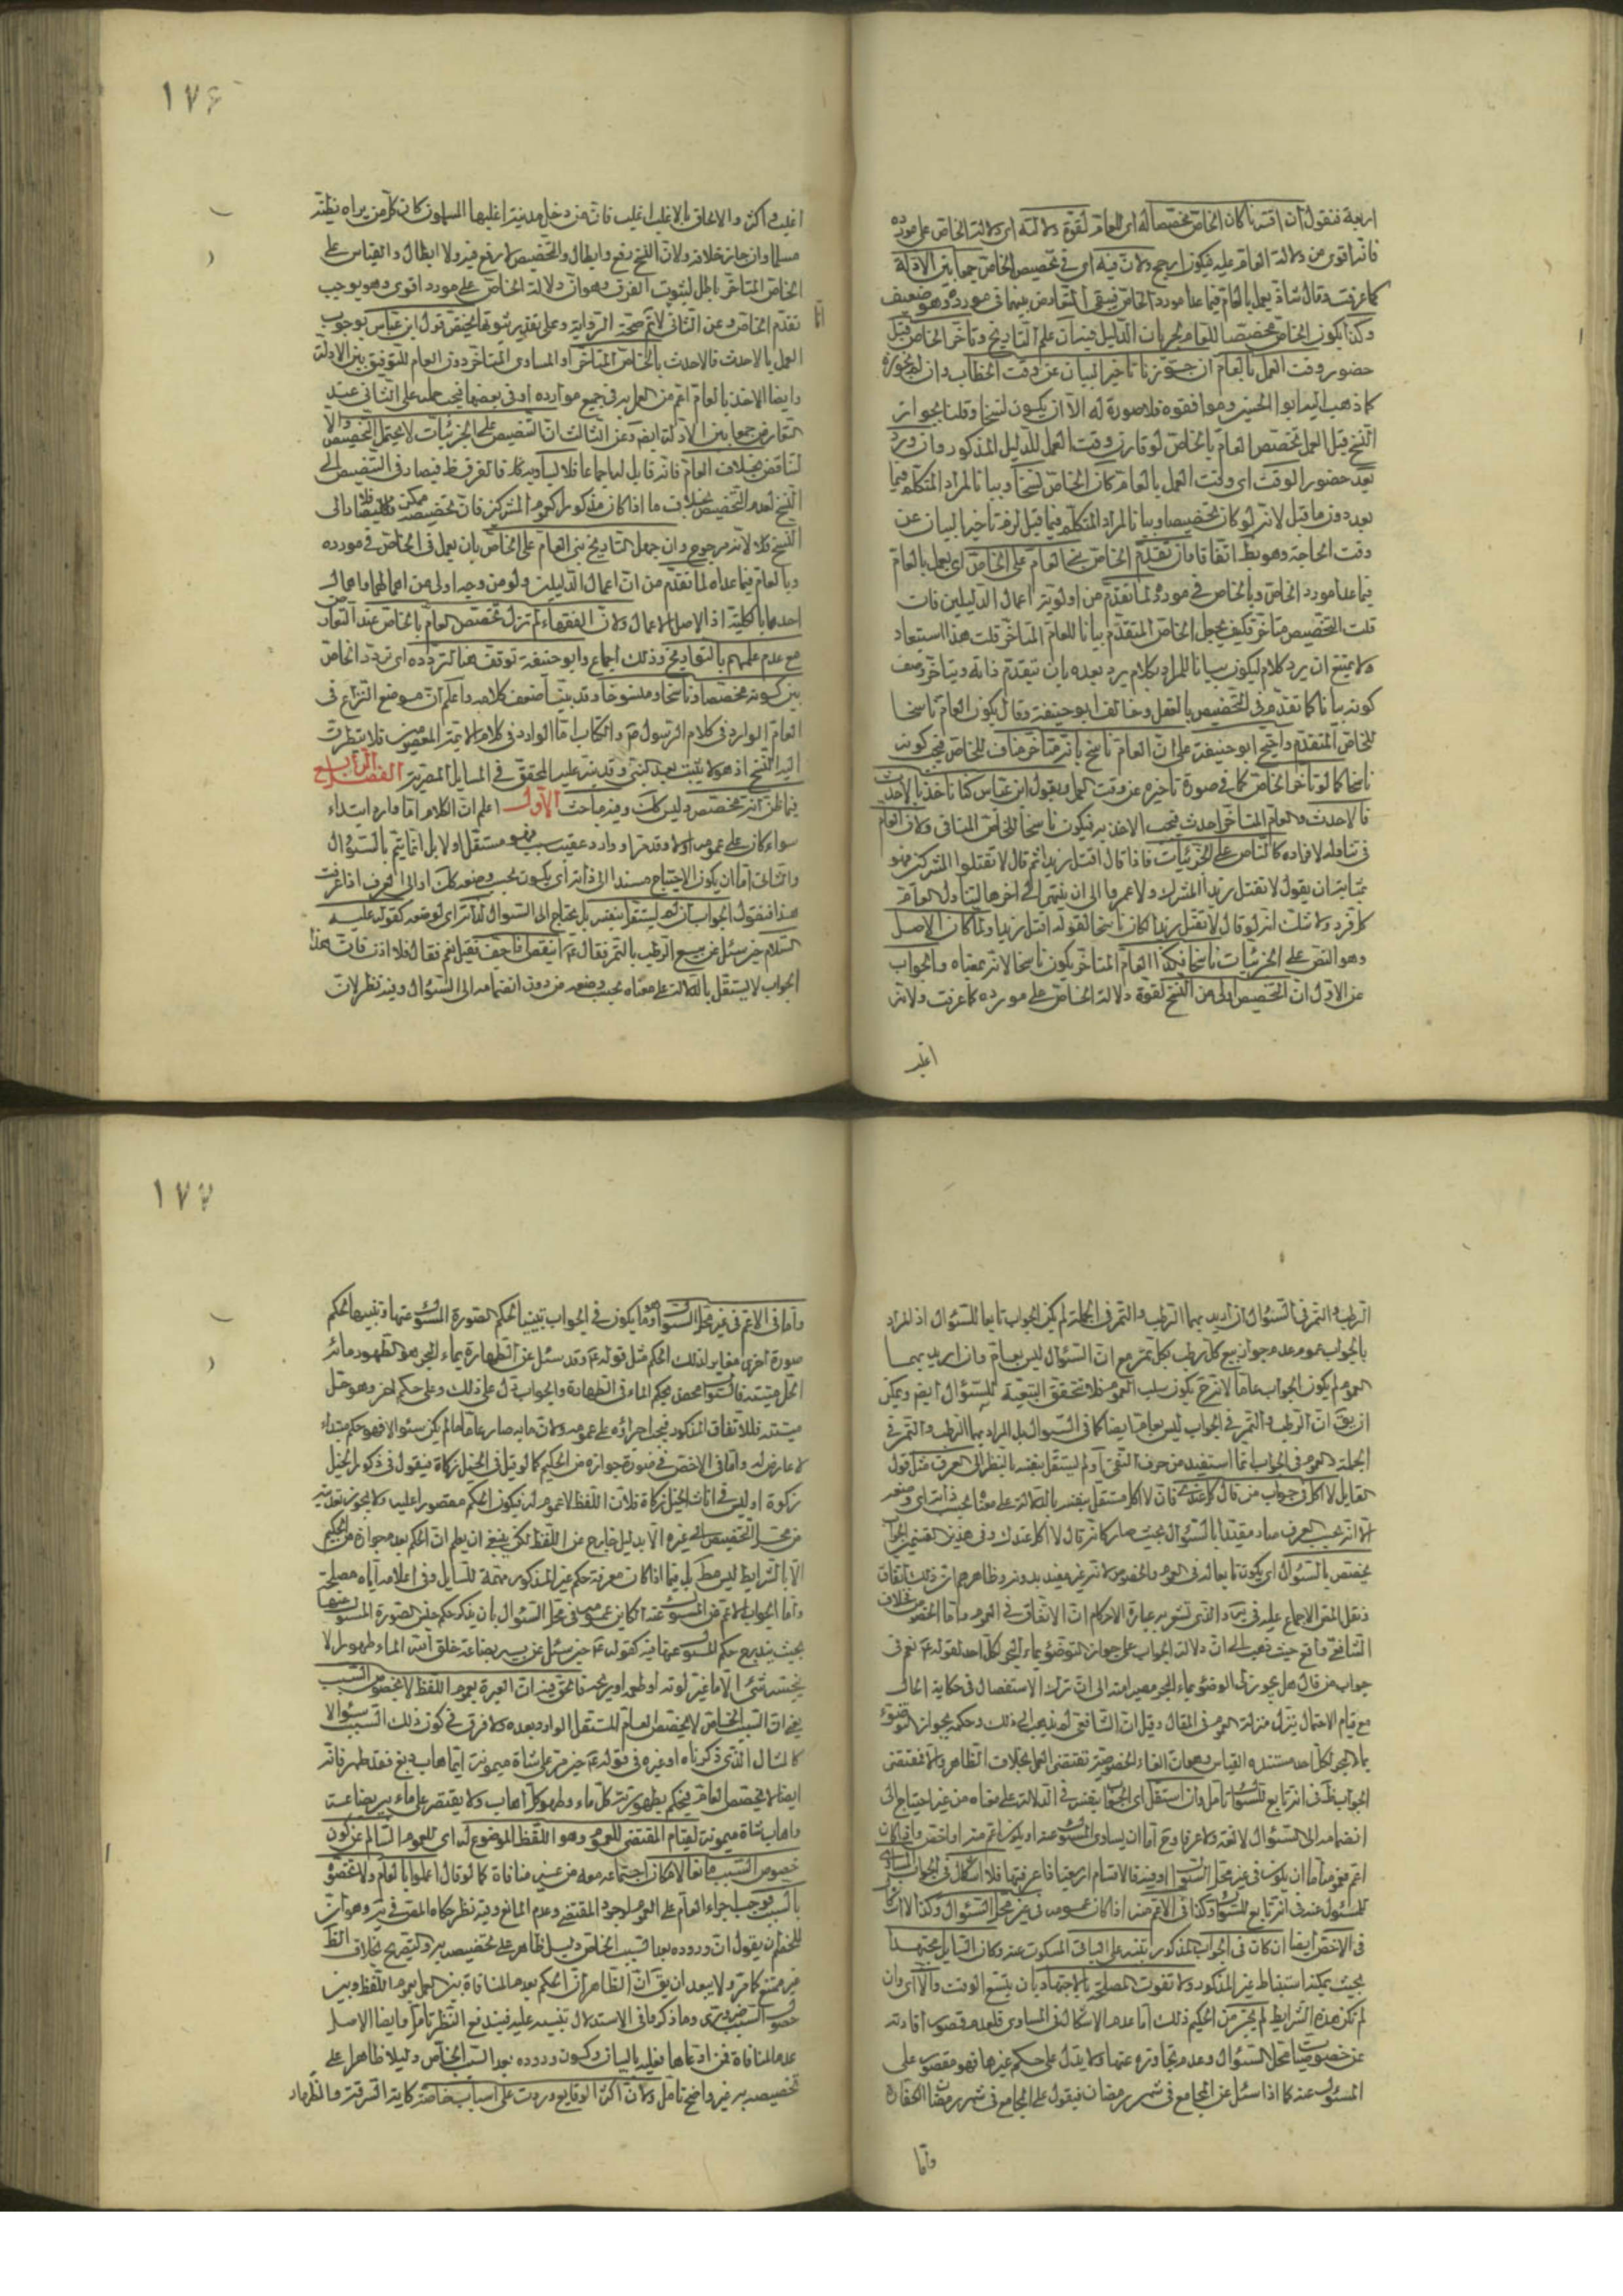 اربعة فنقول ان اقترنا كان الخاص مخصصا له اى للعام لقوة دلالته اى دلالة الخاص على مورده
فانه اقوى من دلالة العام عليه فيكون ارجح ولان فيه اى فى تخصيص الخاص جمعا بين الادلة
كما عرفت وقال شاذ يعمل بالعام فيما عدا مورد الخاص فيبقى التعارض بينهما فى مورده وهو ضعيف
وكذا يكون الخاص مخصصا للعام لجريان الدليل فيه ان علم التاريخ وتاخر الخاص قبل
حضور وقت العمل بالعام ان جوزنا تاخير البيان عن وقت الخطاب وان لم نجوزه
كما ذهب اليه ابو الحسين وموافقوه فلا صورة له الا ان يكون نسخا وقلنا بجواز
النسخ قبل العمل تخصص العام بالخاص لو قارن وقت العمل للدليل المذكور وان ورد
بعد حضور الوقت اى وقت العمل بالعام كان الخاص نسخا وبيانا لمراد المتكلم فيما
بعد دون ما قبل لانه لو كان تخصيصا وبيانا لمراد المتكلم فيما قبل لزم تاخير البيان عن
وقت الحاجة وهو بط اتفاقا وان تقدم الخاص بنى العام على الخاص اى يعمل بالعام
فيما عدا مورد الخاص وبالخاص فى مورده لما تقدم من اولوية اعمال الدليلين فان
قلت التخصيص متاخر فكيف يجعل الخاص المتقدم بيانا للعام المتاخر قلت هذا استبعاد
ولا يمتنع ان يرد كلام ليكون بيانا للمراد بكلام يرد بعده بان يتقدم ذاته ويتاخر وصف
كونه بيانا كما تقدم فى التخصيص بالعقل وخالف ابو حنيفة وقال يكون العام ناسخا
للخاص المتقدم واحتج ابو حنيفة على ان العام ناسخ بانه متاخر مناف للخاص فيجب كونه
ناسخا كما لو تاخر الخاص كما فى صورة تاخيره عن وقت العمل وبقول ابن عباس كنا ناخذ بالاحدث
فالاحدث والعام المتاخر احدث فيجب الاخذ به فيكون ناسخا للخاص المنافى ولان العام
فى تناوله لافراده كالناص على الجزئيات فاذا قال اقتل زيدا ثم قال لا تقتلوا المشركين فهو
بمثابة ان يقول لا تقتل زيدا المشرك ولا عمروا الى ان ينتهى الى اخرها لتناول العام
كل فرد ولا شك انه لو قال لا تقتل زيدا كان ناسخا لقوله اقتل زيدا ولما كان الاصل
وهو النص على الجزئيات ناسخا فكذا العام المتاخر يكون ناسخا لانه بمعناه والجواب
عن الاول ان التخصيص اولى من النسخ لقوة دلالة الخاص على مورده كما عرفت ولانه
اغلب
١٧۶
اغلب واكثر والالحاق بالاغلب اغلب فان من دخل مدينة اغلبها المسلمون كان كل من يراه يظنه
مسلما وان جاز خلافه ولان النسخ رفع وابطال والتخصيص لا رفع فيه ولا ابطال والقياس على
الخاص المتاخر باطل لثبوت الفرق وهو ان دلالة الخاص على مورده اقوى وهو يوجب
تقدم الخاص وعن الثانى لا نم صحة الرواية وعلى تقدير ثبوتها يختص قول ابن عباس بوجوب
العمل بالاحدث فالاحدث بالخاص المتاخر او المساوى المتاخر دون العام للتوفيق بين الادلة
وايضا الاخذ بالعام اعم من العمل به فى جميع موارده او فى بعضها فيجب حمله على الثانى عند
التعارض جمعا بين الادلة ايضا وعن الثالث ان التنصيص على الجزئيات لا يحتمل التخصيص والا
لتناقض بخلاف العام فانه قابل لها اجماعا فلا يساويه فالفرق ظ فيصار فى التنصيص الى
النسخ لعدم التخصيص بخلاف ما اذا كان مذكورا لعموم المشركين فان تخصيصه ممكن فلا يصار الى
النسخ فلا لانه مرجوح وان جهل التاريخ بنى العام على الخاص بان يعمل فى الخاص فى مورده
وبالعام فيما عداه لما تقدم من ان اعمال الدليلين ولو من وجه اولى من اهمالهما واهمال
احدهما بالكلية اذ الاصل الاعمال ولان الفقهاء لم تزل تخصص العام بالخاص عند التعارض
مع عدم علمهم بالتاريخ وذلك اجماع وابو حنيفة توقف هنا لتردده اى تردد الخاص
بين كونه مخصصا وناسخا ومنسوخا وقد بينا ضعف كلامه واعلم ان موضع النزاع فى
العام الوارد فى كلام الرسول ص والكتاب اما الوارد فى كلام الائمة المعصومين فلا يتطرق
اليه النسخ اذ هو لا يثبت بعد النبى وقد نبه عليه المحقق فى المسايل المصرية الفصل الرابع
فيما ظن انه مخصص وليس كذلك وفيه مباحث الاول اعلم ان الكلام اما وارد ابتداء
سواء كان على عمومه اولا وقد مر او وارد عقيب سبب فهو مستقل اولا بل انما يتم بالسؤال
والثانى اما ان يكون الاحتياج مستندا الى ذاته اى يكون بحسب وضعه كذلك او الى العرف اذا عرفت
هذا فنقول الجواب ان لم يستقل بنفسه بل يحتاج الى السؤال لذاته اى لوضعه كقوله عليه
السلام حين سئل عن بيع الرطب بالتمر فقال ع أينقص اذا جف فقيل نعم فقال فلا اذن فان هذا
الجواب لا يستقل بالدلالة على معناه بحسب وضعه من دون انضمامه الى السؤال وفيه نظر لان
الرطب والتمر فى السؤال ان اريد بهما الرطب والتمر فى الجملة لم يكن الجواب تابعا للسؤال اذ المراد
بالجواب عموم عدم جواز بيع كل رطب بكل تمر مع ان السؤال ليس بعام وان اريد بهما
العموم لم يكون الجواب عاما لانه ح يكون سلب العموم فلا تتحقق التبعية للسؤال ايضا ويمكن
ان يق ان الرطب والتمر فى الجواب ليس بعام ايضا كما فى السؤال بل المراد بهما الرطب والتمر فى
الجملة والعموم فى الجواب انما استفيد من حرف النفى او لم يستقل بنفسه بالنظر الى العرف مثل قول
القايل لا اكل فى جواب من قال كل عندى فان لا اكل مستقل بنفسه بالدلالة على معناه بحسب ذاته اى وضعه
الا انه بحسب العرف صار مقيدا بالسؤال بحيث صار كانه قال لا اكل عندك وفى هذين القسمين الجواب
يختص بالسؤال اى يكون تابعا له فى العموم والخصوص لانه غير مفيد بدونه وظاهرهم ان ذلك اتفاق
ونقل المص الاجماع عليه فى يه والذى تشعر به عبارة الاحكام ان الاتفاق فى العموم واما الخصوص فخلاف
الشافعى واقع حيث ذهب الى ان دلالة الجواب على جواز التوضؤ بماء البحر لكل احد لقوله ع نعم فى
جواب من قال هل يجوز لى الوضوء بماء البحر مصيرا منه الى ان ترك الاستفصال فى حكاية الحال
مع قيام الاحتمال ينزل منزلة العموم فى المقال وقيل ان الشافعى لم يذهب الى ذلك وحكمه بجواز التوضؤ
بماء البحر لكل احد مستنده القياس
الجواب
انضمامه الى السؤال لا لغة ولا عرفا وح اما ان يساوى المسؤل عنه او يكون اعم منه او اخص واذا كان
اعم فهو اما ان يكون فى غير محل السؤال او فيه فالاقسام اربعة اذا عرفتها فلا اشكال فى الجواب المساوى
للمسئول عنه فى انه تابع للسؤال وكذا فى الاعم منه اذا كان عمومه فى غير محل السؤال وكذا لا اشكال
فى الاخص ايضا ان كان فى الجواب المذكور تنبيه على الباقى المسكوت عنه وكان السايل مجتهدا
بحيث يمكنه استنباط غير المذكور ولا تفوت المصلحة بالاجتهاد بان يتسع الوقت والا اى وان
لم تكن هذه الشرايط لم يجز من الحكيم ذلك اما عدم الاشكال فى المساوى فلعدم قصور افادته
عن خصوصيات محل السؤال وعدم تجاوزه عنها ولا يدل على حكم غيرها فهو مقصور على
المسئول عنه كما اذا سئل عن المجامع فى شهر رمضان فيقول على المجامع فى شهر رمضان الكفارة
واما
١٧٧
واما فى الاعم فى غير محل السؤال وهو ما يكون فى الجواب تبيين الحكم لصورة المسئول عنها وتنبيها لحكم
صورة اخرى مغاير لذلك الحكم مثل قوله ع وقد سئل عن الطهارة بماء البحر هو الطهور مائه
الحل ميتته فالسؤال محض بحكم الماء فى الطهارة والجواب دل على ذلك وعلى حكم اخر وهو حل
ميتته فللاتفاق المذكور فيجب اجراؤه على عمومه ولان ما به صار عاما لما لم يكن سئوالا فهو حكم مبتداء
لا عارض له واما فى الاخص فى صورة جوازه من الحكيم كما لو قيل فى الخيل زكاة فيقول فى ذكور الخيل
زكوة او ليس فى اناث الخيل زكاة فلان اللفظ لا عموم له فيكون الحكم مقصورا عليه ولا يجوز تعديته
من محل التخصيص الى غيره الا بدليل خارج عن اللفظ لكن ينبغى ان يعلم ان الحكم بعدم جوازه من الحكيم
الا بالشرايط ليس مط بل فيما اذا كان معرفة حكم غير المذكور مهمة للسايل وفى اعلامه اياه مصلحة
واما الجواب الاعم من المسئول عنه اذا كان عمومه فى محل السؤال بان يذكر حكم جنس الصورة المسئول عنها
بحيث يندرج حكم المسئول عنها فيه كقوله ع حين سئل عن بير بضاعة خلق الله الماء طهورا لا
ينجسه شئ الا ما غير لونه او طعمه او ريحه فالحق فيه ان العبرة بعموم اللفظ لا بخصوص السبب
يعنى ان السبب الخاص لا يخصص العام المستقل الوارد بعده ولا فرق فى كون ذلك السبب سئوالا
كالمثال الذى ذكرناه او غيره فى قوله ع حين مر على شاة ميمونة ايما اهاب دبغ فقد طهر فانه
ايضا لا يخصص العام فيحكم بطهورية كل ماء وطهر كل اهاب ولا يقتصر على ماء بير بضاعة
واهاب شاة ميمونة لقيام المقتضى للعموم وهو اللفظ الموضوع له اى للعموم السالم عن كون
خصوص السبب مانعا لامكان اجتماعه معه من غير منافاة كما لو قال اعملوا بالعام ولا تخصوه
بالسبب فوجب اجراء العام على العموم لوجود المقتضى وعدم المانع وفيه نظر حكاه المص فى يه وهو ان
للخصم ان يقول ان وروده بعد السبب الخاص دليل ظاهر على تخصيصه به والتصريح بخلاف الظ
غير ممتنع كما مر ولا يبعد ان يق ان الظاهر ان الحكم بعدم المنافاة بين العمل بعموم اللفظ وبين
خصوص السبب ضرورى وما ذكروه فى الاستدلال تنبيه عليه فيندفع النظر تامل وايضا الاصل
عدم المنافاة فمن ادعاها فعليه بالبيان وكون وروده بعد السبب الخاص دليلا ظاهرا على
تخصيصه به غير واضح تامل ولان اكثر الوقايع وردت على اسباب خاصة كاية السرقة والظهار